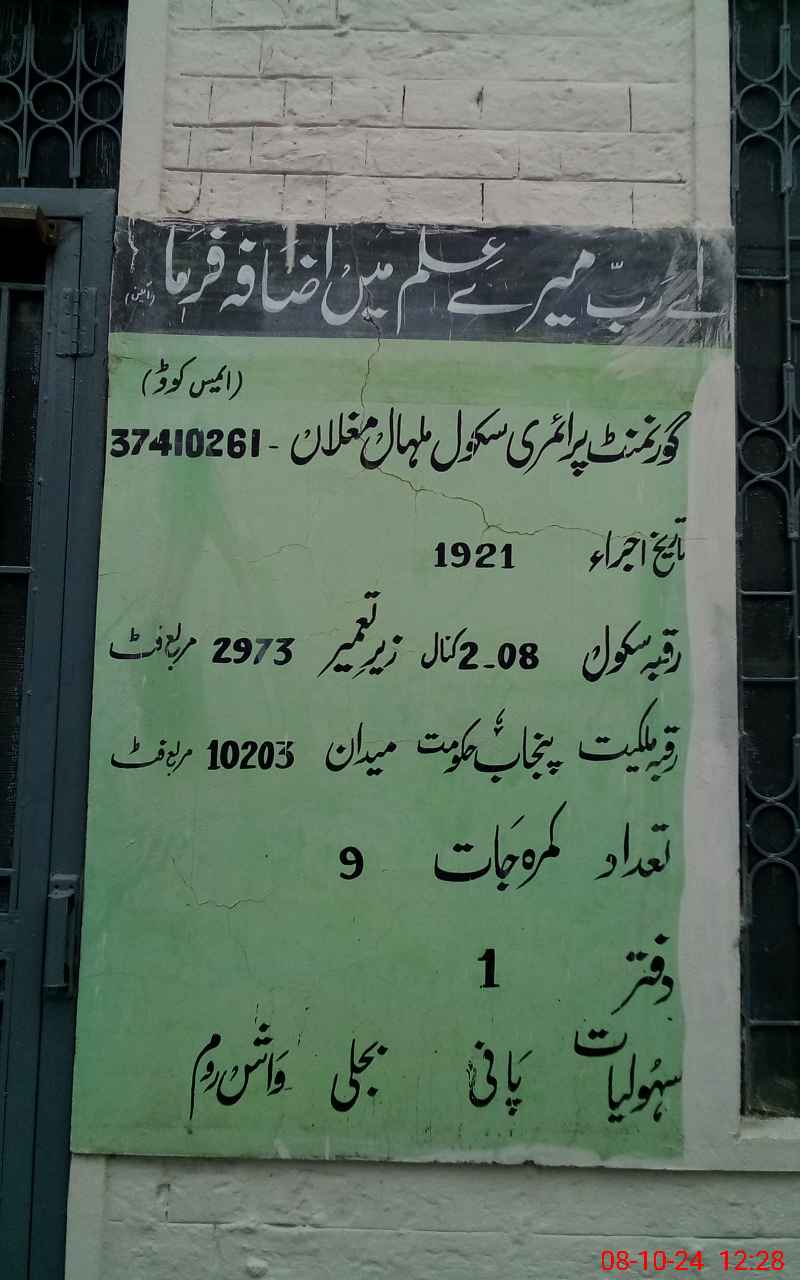 اے رَبّ میرے عِلم میں اضافہ فرما (آمین)
(ایمیس کوڈ)
گورنمنٹ پرائمری سکول ملہال مغلاں - 37410261
تاریخ اجراء 1921
رقبہ سکول 2-08 کنال زیرِ تعمیر 2973 مربع فٹ
رقبہ ملکیت پنجاب حکومت میدان 10203 مربع فٹ
تعداد کمرہ جات 9
دفتر 1
سہولیات پانی بجلی واش روم
08-10-24 12:28